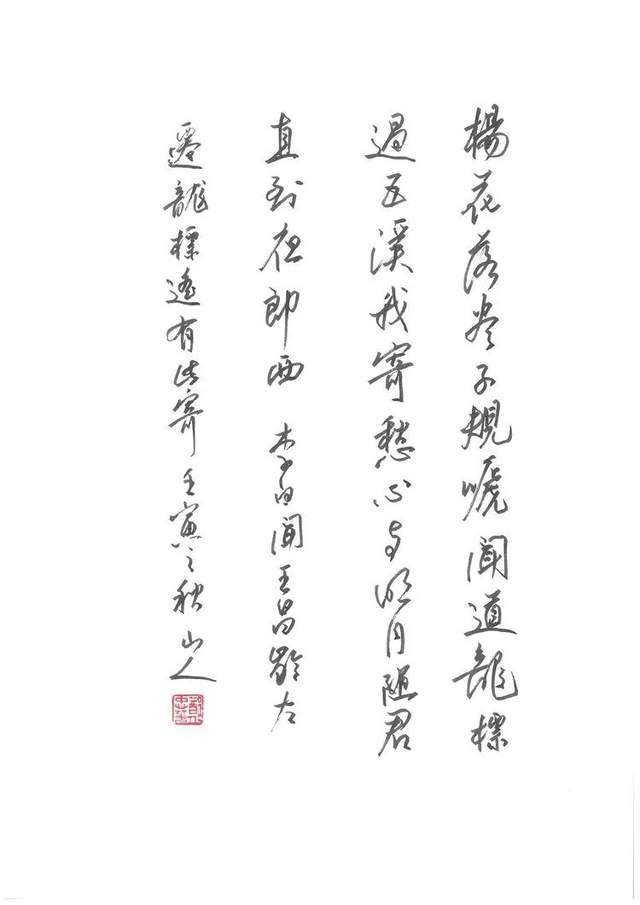 楊花落盡子規嗁聞道龍標
過五溪我寄愁心与明月隨君
直到夜郎西 李白聞王昌齡左
遷龍標遙有此寄 壬寅之秋 山人